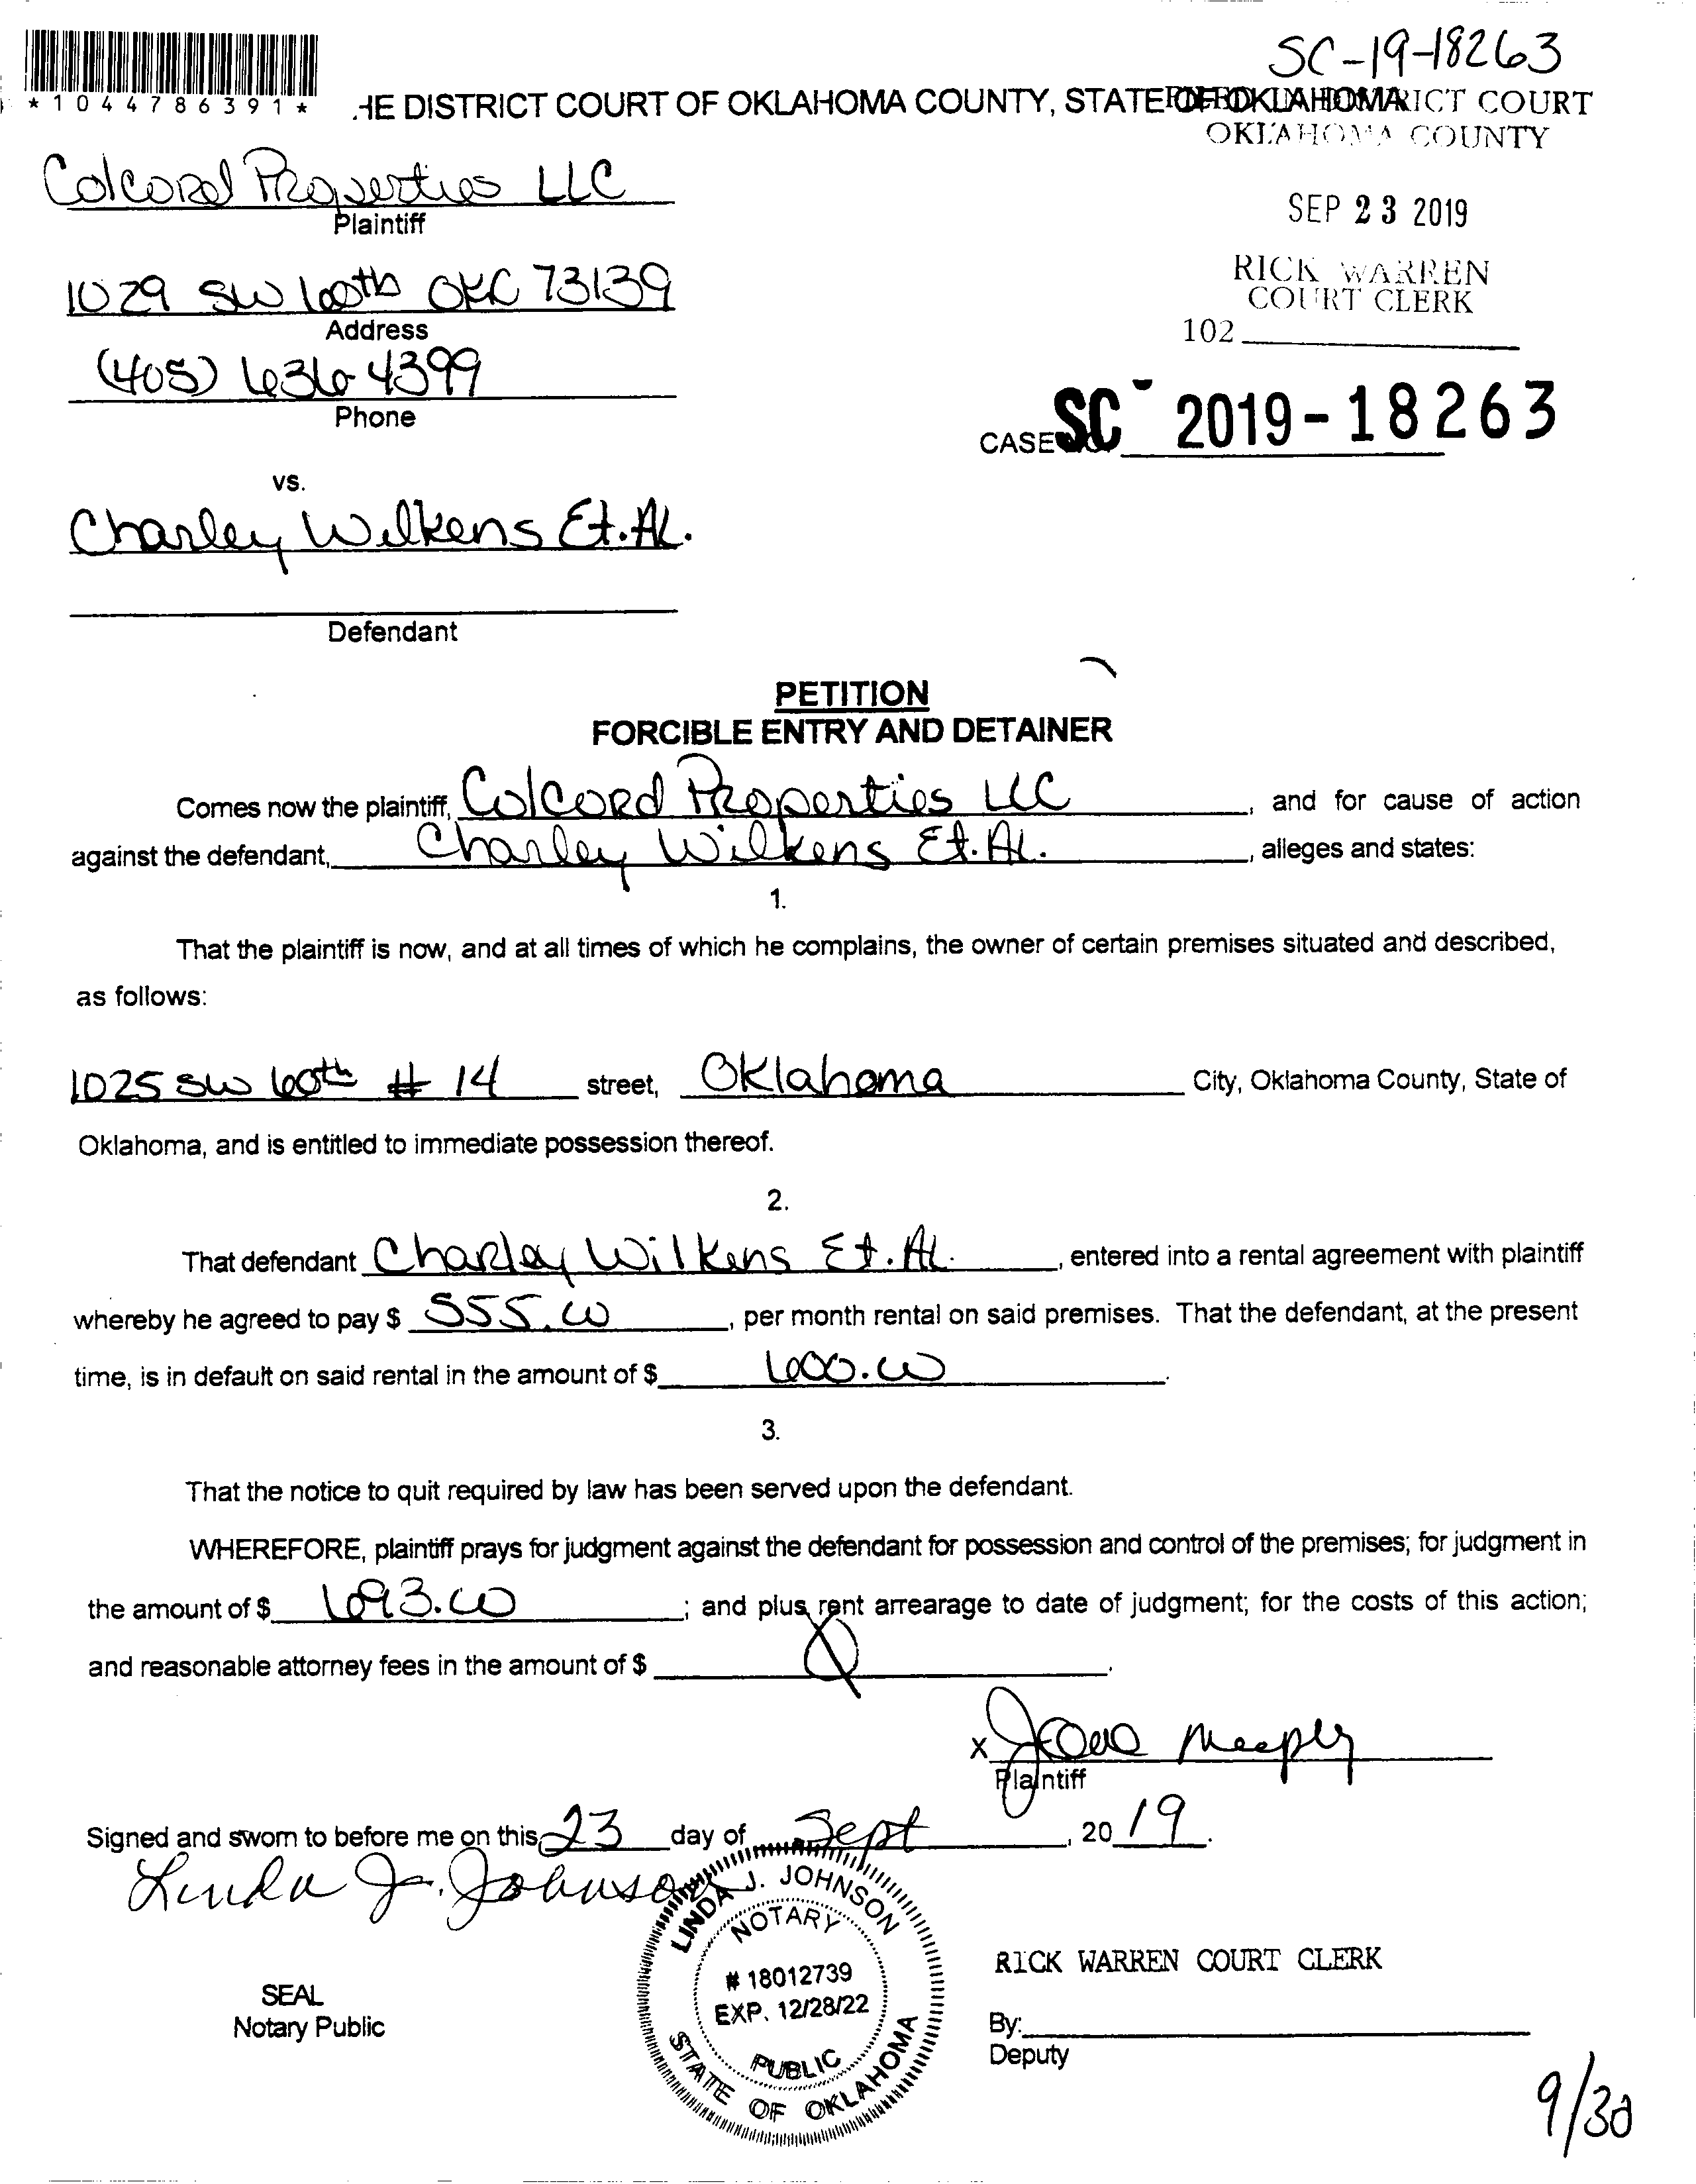 SC-19-18263
*1044786391*
HE DISTRICT COURT OF OKLAHOMA COUNTY, STATE OF OKLAHOMA
DISTRICT COURT
OKLAHOMA COUNTY
Colcord Properties LLC
Plaintiff
SEP 23 2019
1029 SW 60th OKC 73139
Address
RICK WARREN
COURT CLERK
102
(405) 636 4399
Phone
CASE NO. SC- 2019-18263
vs.
Charley Wilkens Et. Al.
Defendant
PETITION
FORCIBLE ENTRY AND DETAINER
Comes now the plaintiff, Colcord Properties LLC, and for cause of action
against the defendant, Charley Wilkens Et. Al., alleges and states:
1.
That the plaintiff is now, and at all times of which he complains, the owner of certain premises situated and described,
as follows:
1025 SW 60th # 14 street, Oklahoma City, Oklahoma County, State of
Oklahoma, and is entitled to immediate possession thereof.
2.
That defendant Charley Wilkens Et. Al., entered into a rental agreement with plaintiff
whereby he agreed to pay $ 555.00, per month rental on said premises. That the defendant, at the present
time, is in default on said rental in the amount of $ 600.00.
3.
That the notice to quit required by law has been served upon the defendant.
WHEREFORE, plaintiff prays for judgment against the defendant for possession and control of the premises; for judgment in
the amount of $ 693.00; and plus rent arrearage to date of judgment; for the costs of this action;
and reasonable attorney fees in the amount of $
X
Plaintiff
Signed and sworn to before me on this 23 day of Sept, 2019.
Linda J. Johnson
LINDA J. JOHNSON
NOTARY
# 18012739
EXP. 12/28/22
PUBLIC
STATE OF OKLAHOMA
RICK WARREN COURT CLERK
SEAL
Notary Public
By:
Deputy
9/30